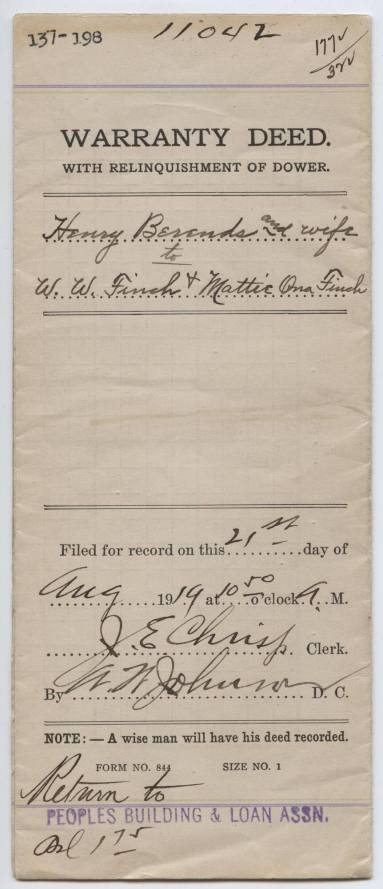 137-198 11042
177v
32v
WARRANTY DEED.
WITH RELINQUISHMENT OF DOWER.
Henry Berends and wife
to
W. W. Finch & Mattie Ona Finch
Filed for record on this 21st day of
Aug 1919 at 10 50 o'clock A. M.
J. E. Chrisp Clerk.
By W. W. Johnson D. C.
NOTE:— A wise man will have his deed recorded.
FORM NO. 844 SIZE NO. 1
Return to
PEOPLES BUILDING & LOAN ASSN.
1 75